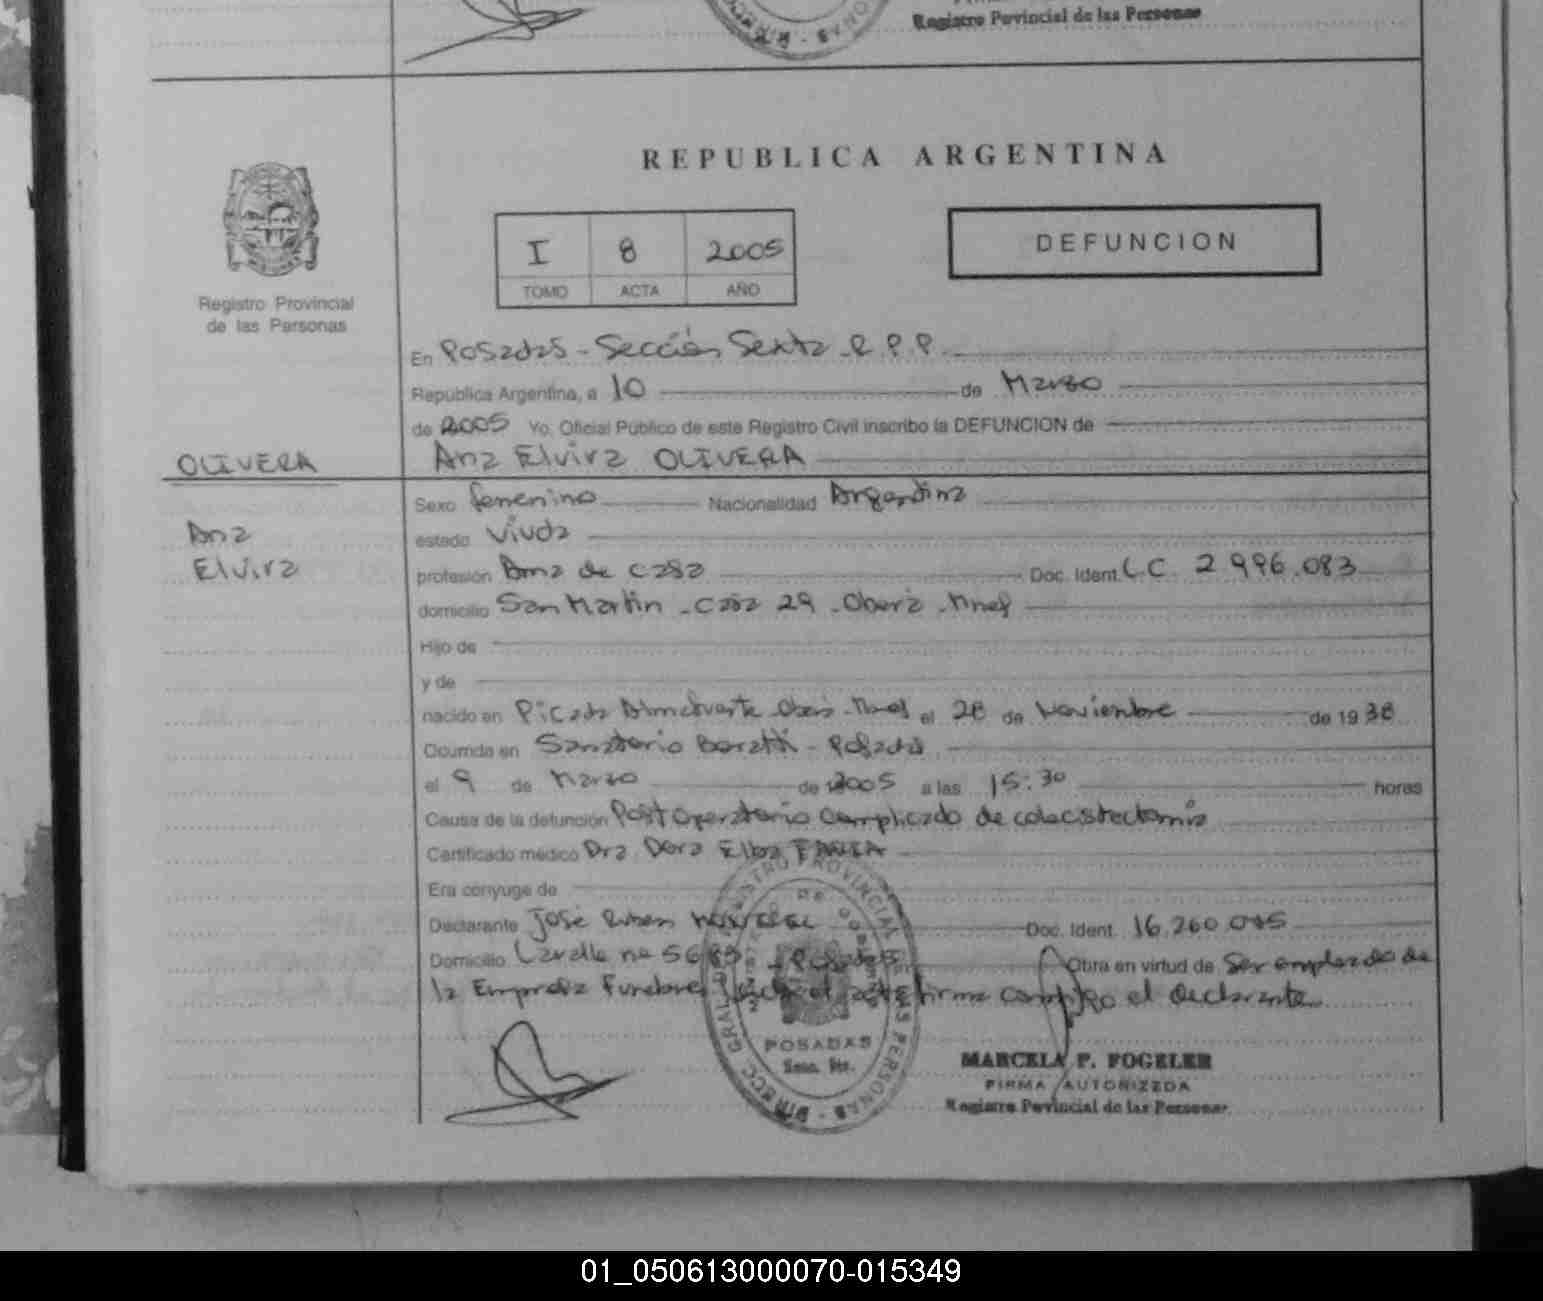 Registro Povincial de las Personas
REPUBLICA ARGENTINA
I 8 2005
TOMO ACTA AÑO
DEFUNCION
Registro Provincial
de las Personas
En Posadas - Sección Sexta R.P.P.
República Argentina, a 10 de Marzo
de 2005 Yo, Oficial Público de este Registro Civil inscribo la DEFUNCION de
OLIVERA Ana Elvira OLIVERA
Sexo femenino Nacionalidad Argentina
Ana estado Viuda
Elvira profesión Ama de casa Doc. Ident. L.C. 2.996.083
domicilio San Martin - casa 29 - Oberá - Mnes
Hijo de
y de
nacido en Picada Almafuerte Oberá - Mnes el 28 de Noviembre de 1938
Ocurrida en Sanatorio Boratti - Posadas
el 9 de Marzo de 2005 a las 15:30 horas
Causa de la defunción Post Operatorio Complicado de colecistectomía
Certificado médico Dra. Dora Elba FARIA
Era cónyuge de
Declarante José Ruben Doc. Ident. 16.260.045
Domicilio Lavalle nº Posadas Obra en virtud de Ser empleado de
la Empresa Funebre firma conmigo el declarante
POSADAS
Secc. 6ta.
MARCELA P. FOGELER
FIRMA AUTORIZADA
Registro Povincial de las Personas
01_050613000070-015349